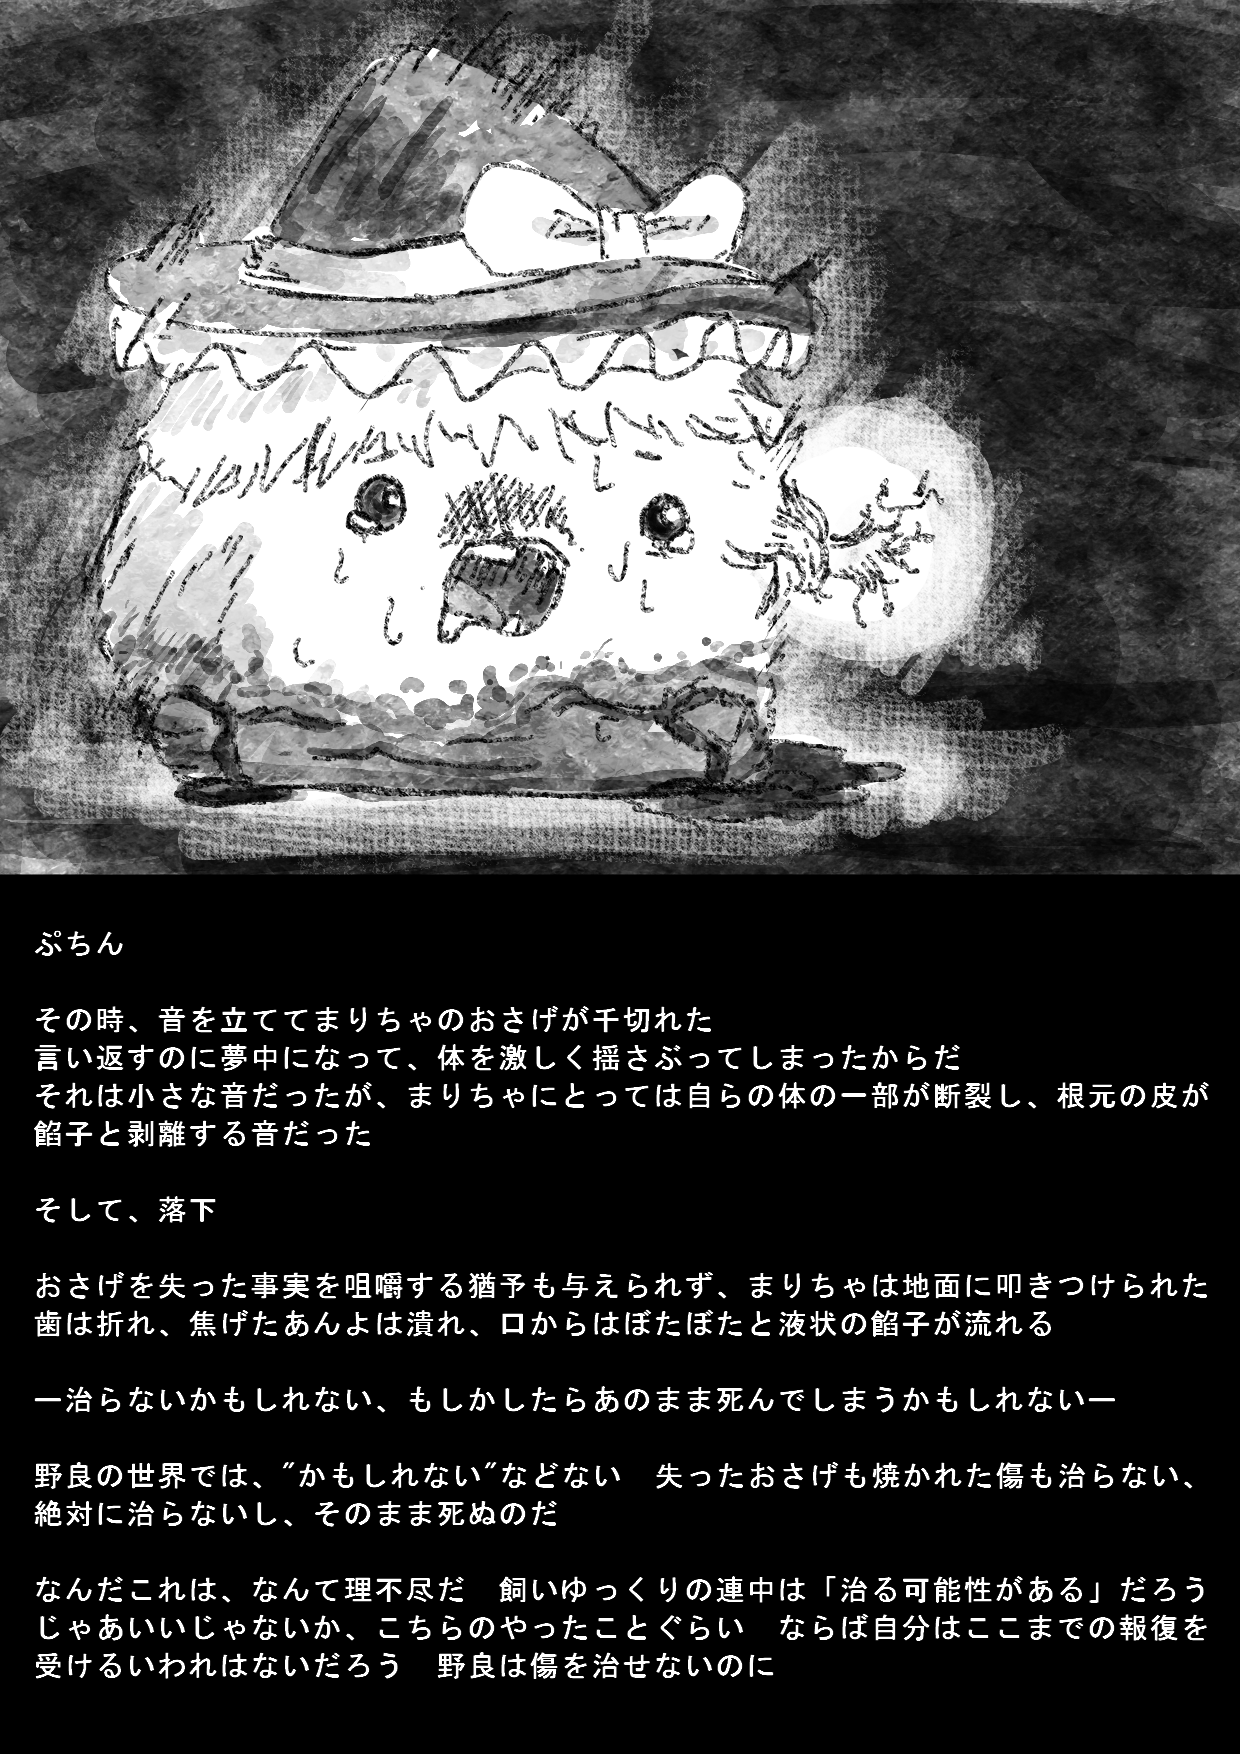 ぷちん
その時、音を立ててまりちゃのおさげが千切れた
言い返すのに夢中になって、体を激しく揺さぶってしまったからだ
それは小さな音だったが、まりちゃにとっては自らの体の一部が断裂し、根元の皮が
餡子と剥離する音だった
そして、落下
おさげを失った事実を咀嚼する猶予も与えられず、まりちゃは地面に叩きつけられた
歯は折れ、焦げたあんよは潰れ、口からはぼたぼたと液状の餡子が流れる
―治らないかもしれない、もしかしたらあのまま死んでしまうかもしれない―
野良の世界では、"かもしれない"などない　失ったおさげも焼かれた傷も治らない、
絶対に治らないし、そのまま死ぬのだ
なんだこれは、なんて理不尽だ　飼いゆっくりの連中は「治る可能性がある」だろう
じゃあいいじゃないか、こちらのやったことぐらい　ならば自分はここまでの報復を
受けるいわれはないだろう　野良は傷を治せないのに